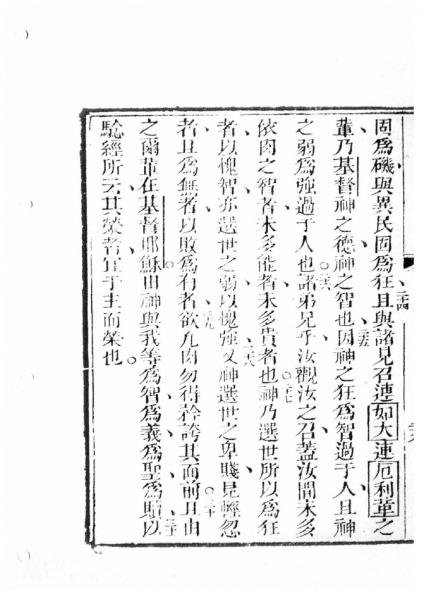 固為磯與異民固為狂二四且與諸見召連如大連厄利革之
輩乃基督神之德神之智也二五因神之狂為智過于人且神
之弱為強過于人也。二六諸弟兄乎汝觀汝之召蓋汝間未多
依肉之智者未多能者未多貴者也。二七神乃選世所以為狂
者以愧智亦選世之弱以愧強二八又神選世之卑賤見輕忽
者且為無者以敗為有者二九欲凡肉勿得矜誇其面前。三十且由
之爾輩在基督耶穌由神與我等為智為義為聖為贖以
驗經所云其榮者宜于主而榮也。